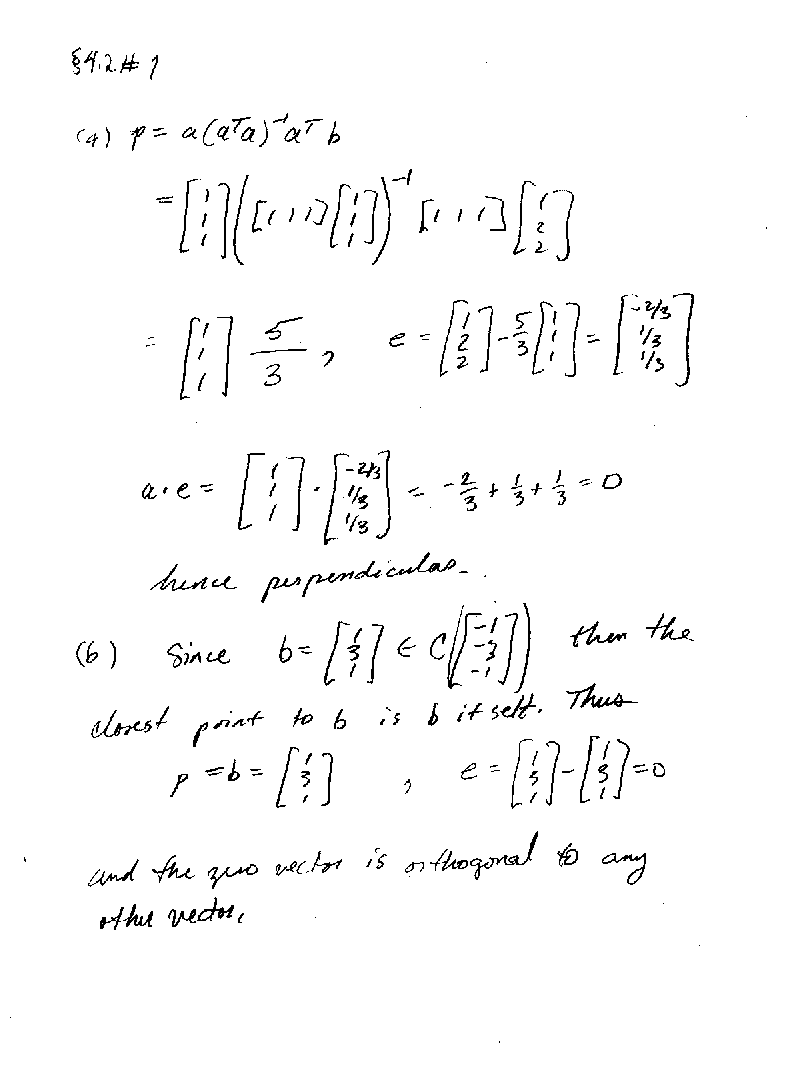 §4.2.#1
(a) p = a(aᵀa)⁻¹aᵀ b
= [1 1 1]ᵀ ([1 1 1] [1 1 1]ᵀ)⁻¹ [1 1 1] [1 2 2]ᵀ
= [1 1 1]ᵀ 5/3 , e = [1 2 2]ᵀ - 5/3 [1 1 1]ᵀ = [-2/3 1/3 1/3]ᵀ
a·e = [1 1 1]ᵀ · [-2/3 1/3 1/3]ᵀ = -2/3 + 1/3 + 1/3 = 0
hence perpendicular.
(b) Since b = [1 3 1]ᵀ ∈ C([-1 -3 -1]ᵀ) then the
closest point to b is b itself. Thus
p = b = [1 3 1]ᵀ , e = [1 3 1]ᵀ - [1 3 1]ᵀ = 0
and the zero vector is orthogonal to any
other vector.